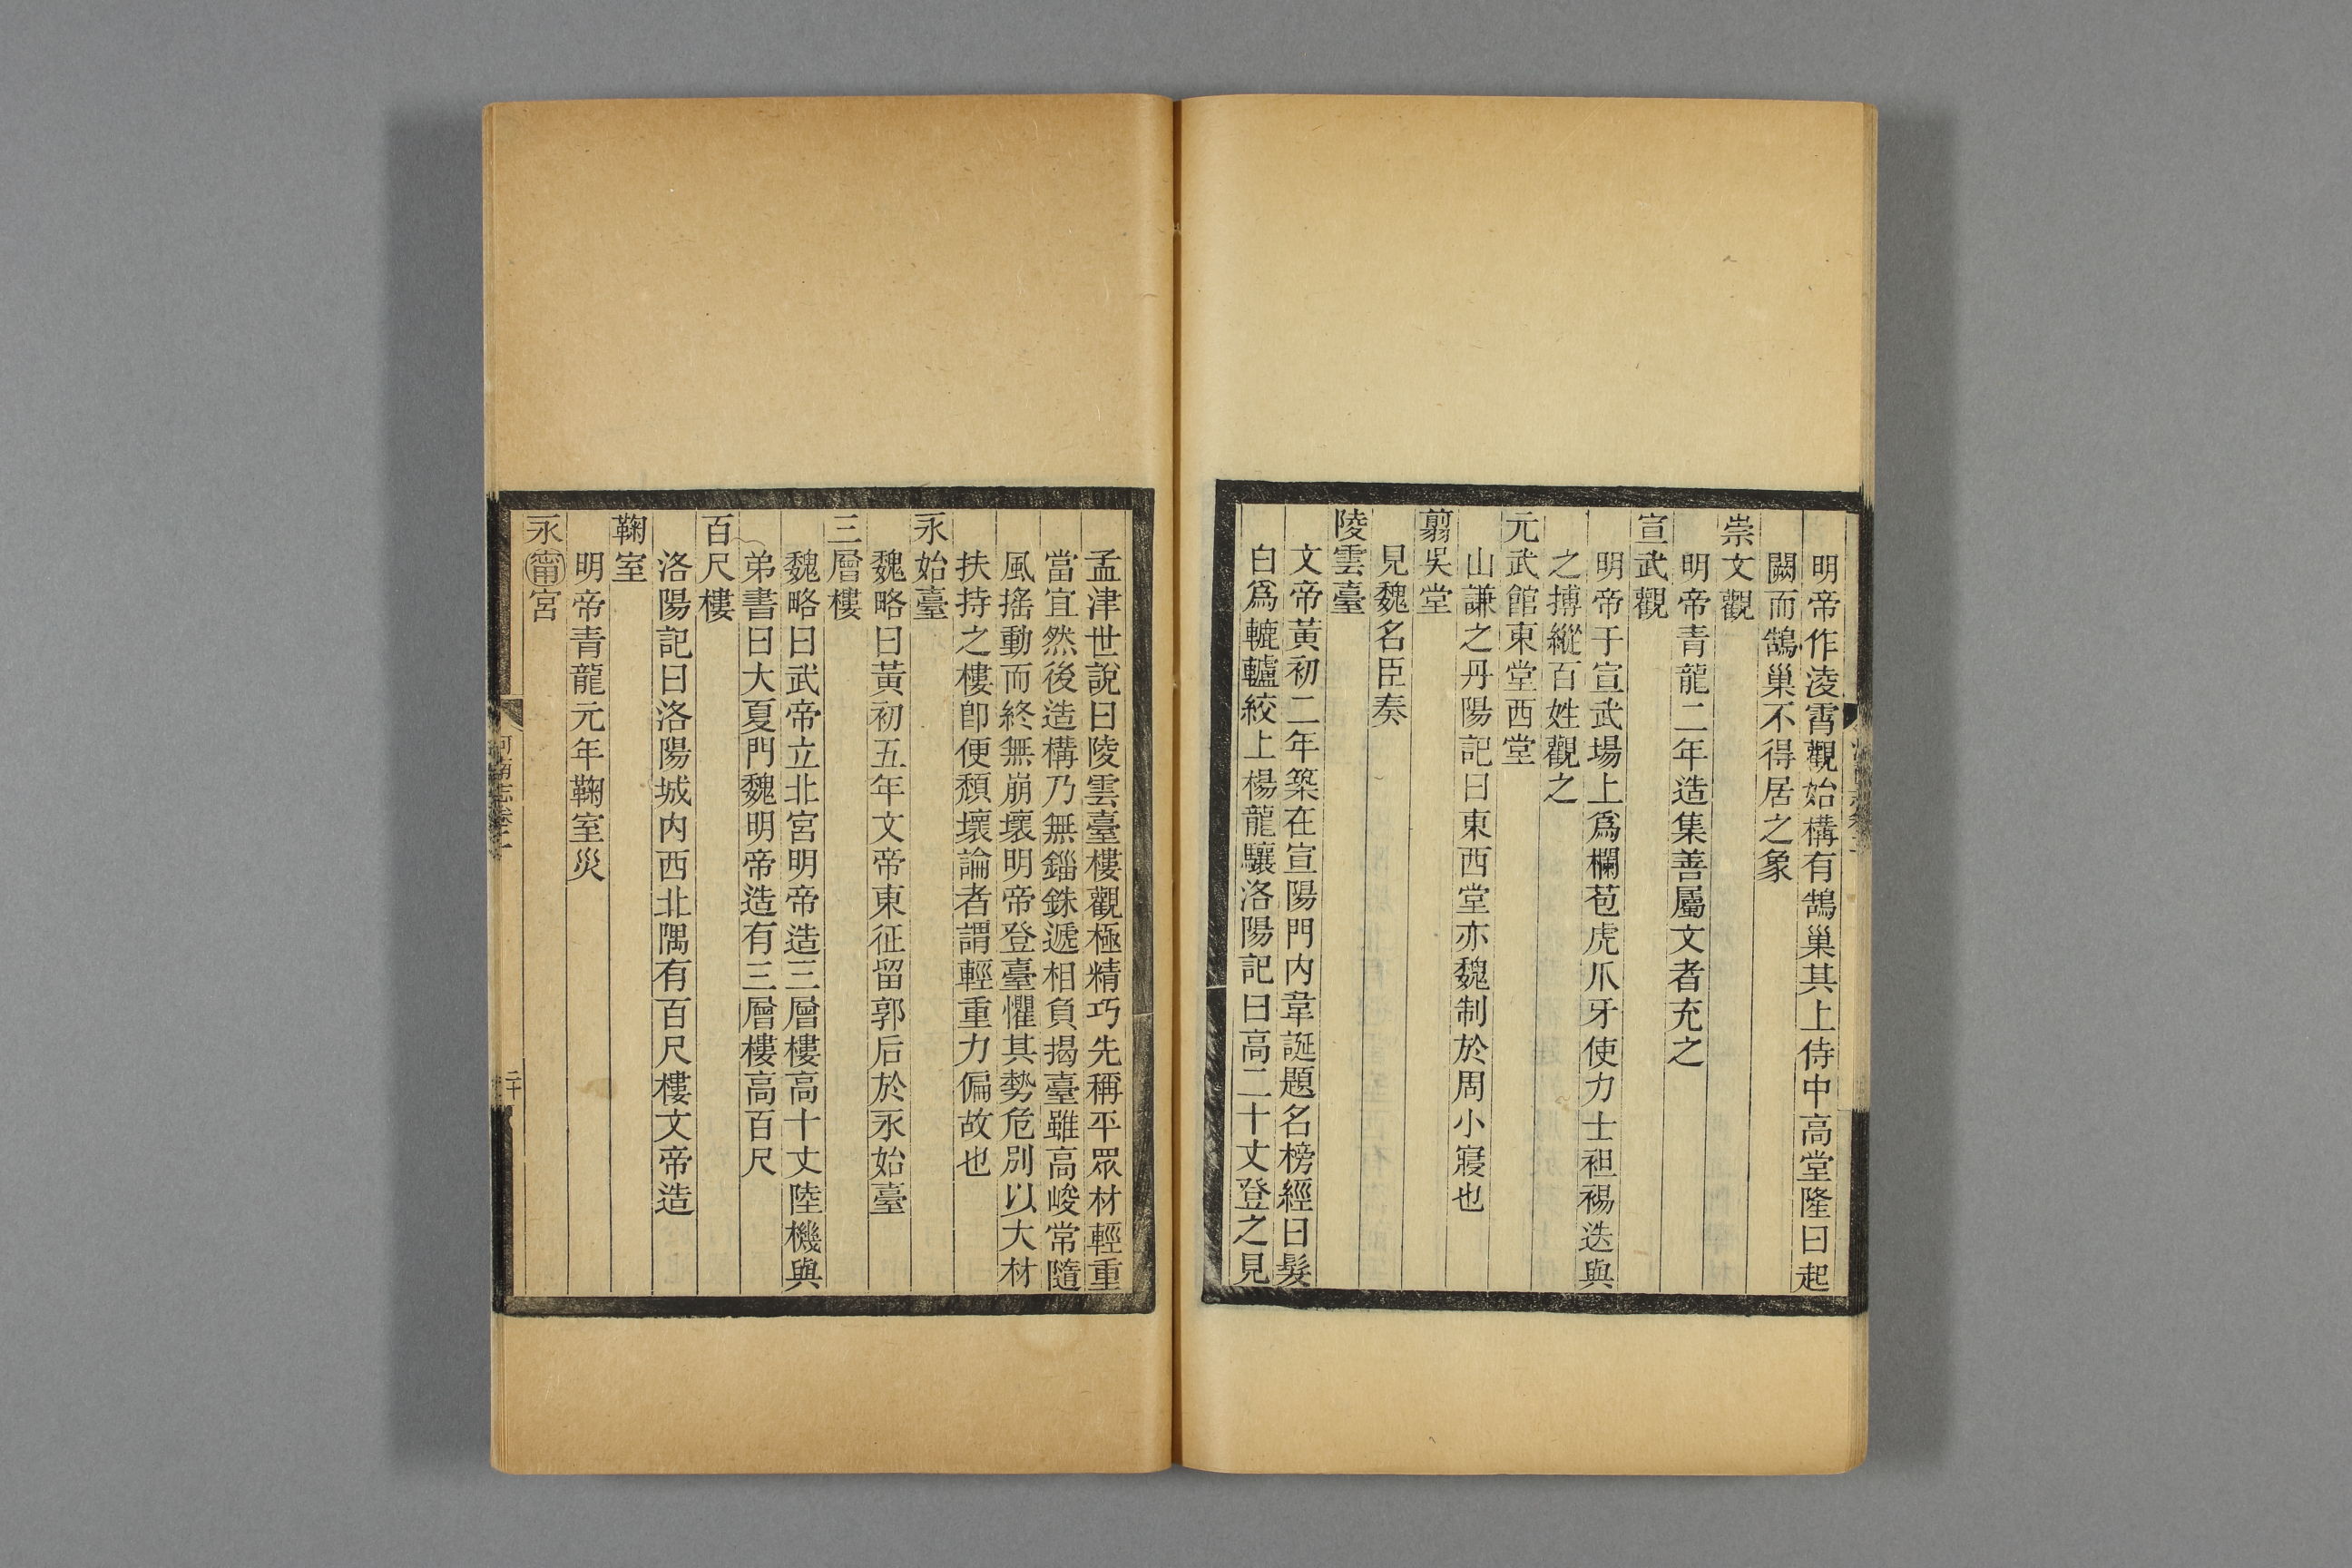 明帝作淩霄觀始構有鵠巢其上侍中高堂隆曰起
闕而鵠巢不得居之象
崇文觀
明帝青龍二年造集善屬文者充之
宣武觀
明帝于宣武場上爲欄苞虎爪牙使力士袒裼迭與
之搏縱百姓觀之
元武館東堂西堂
山謙之丹陽記曰東西堂亦魏制於周小寢也
翦吳堂
見魏名臣奏
陵雲臺
文帝黃初二年築在宣陽門內韋誕題名榜經日髮
白爲轆轤絞上楊龍驤洛陽記曰高二十丈登之見
孟津世說曰陵雲臺樓觀極精巧先稱平眾材輕重
當宜然後造構乃無錙銖遞相負揭臺雖高峻常隨
風搖動而終無崩壞明帝登臺懼其勢危別以大材
扶持之樓卽便頹壞論者謂輕重力偏故也
永始臺
魏略曰黃初五年文帝東征留郭后於永始臺
三層樓
魏略曰武帝立北宮明帝造三層樓高十丈陸機與
弟書曰大夏門魏明帝造有三層樓高百尺
百尺樓
洛陽記曰洛陽城內西北隅有百尺樓文帝造
鞠室
明帝青龍元年鞠室災
永甯宮
河南志卷二
二十